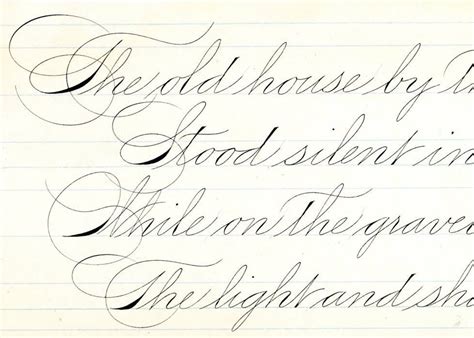 The old house by th
Stood silent in
While on the grave
The light and sh